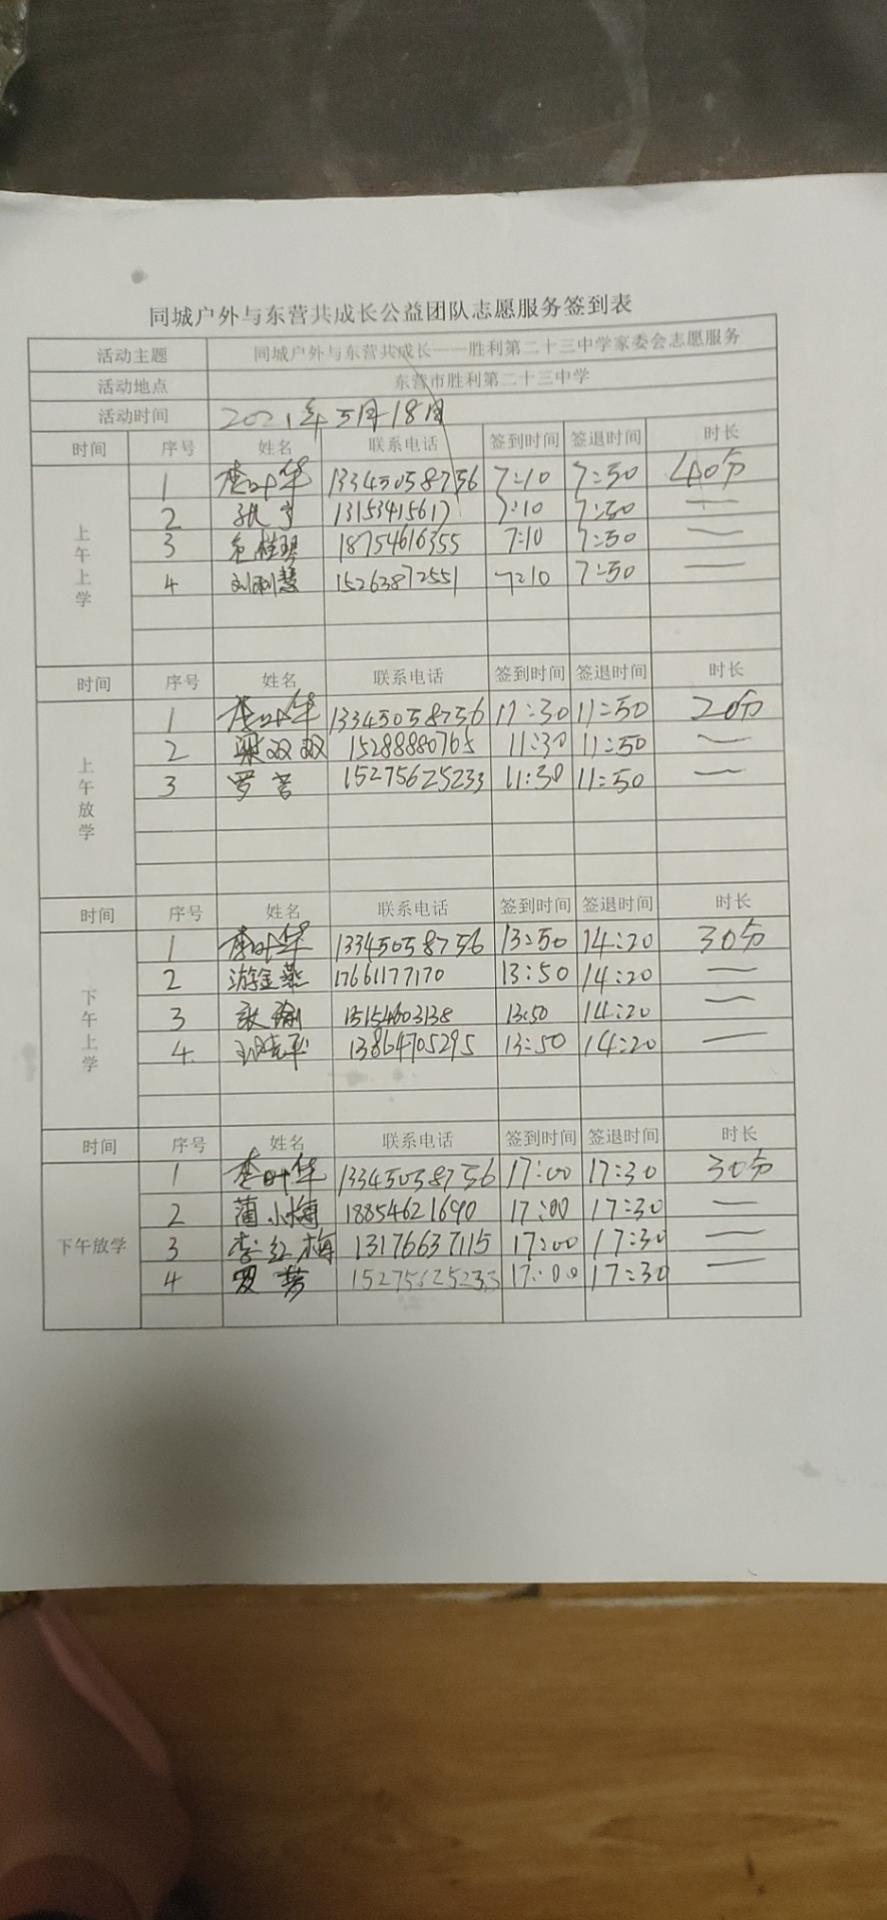 同城户外与东营共成长公益团队志愿服务签到表
活动主题 同城户外与东营共成长——胜利第二十三中学家委会志愿服务
活动地点 东营市胜利第二十三中学
活动时间 2021年5月18日
时间 序号 姓名 联系电话 签到时间 签退时间 时长
上午上学
1 李叶华 13345058756 7:10 7:50 40分
2 13153415617 7:10 7:50 —
3 18754616355 7:10 7:50 —
4 刘利慧 15263872551 7:10 7:50 —
时间 序号 姓名 联系电话 签到时间 签退时间 时长
上午放学
1 李叶华 13345058756 11:30 11:50 20分
2 梁双双 15288880765 11:30 11:50 —
3 罗芳 15275625233 11:30 11:50 —
时间 序号 姓名 联系电话 签到时间 签退时间 时长
下午上学
1 李叶华 13345058756 13:50 14:20 30分
2 游金燕 17661177170 13:50 14:20 —
3 15154603138 13:50 14:20 —
4 13864705295 13:50 14:20 —
时间 序号 姓名 联系电话 签到时间 签退时间 时长
下午放学
1 李叶华 13345058756 17:00 17:30 30分
2 蒲小梅 18854621690 17:00 17:30 —
3 李红梅 13176637115 17:00 17:30 —
4 罗芳 15275625233 17:00 17:30 —